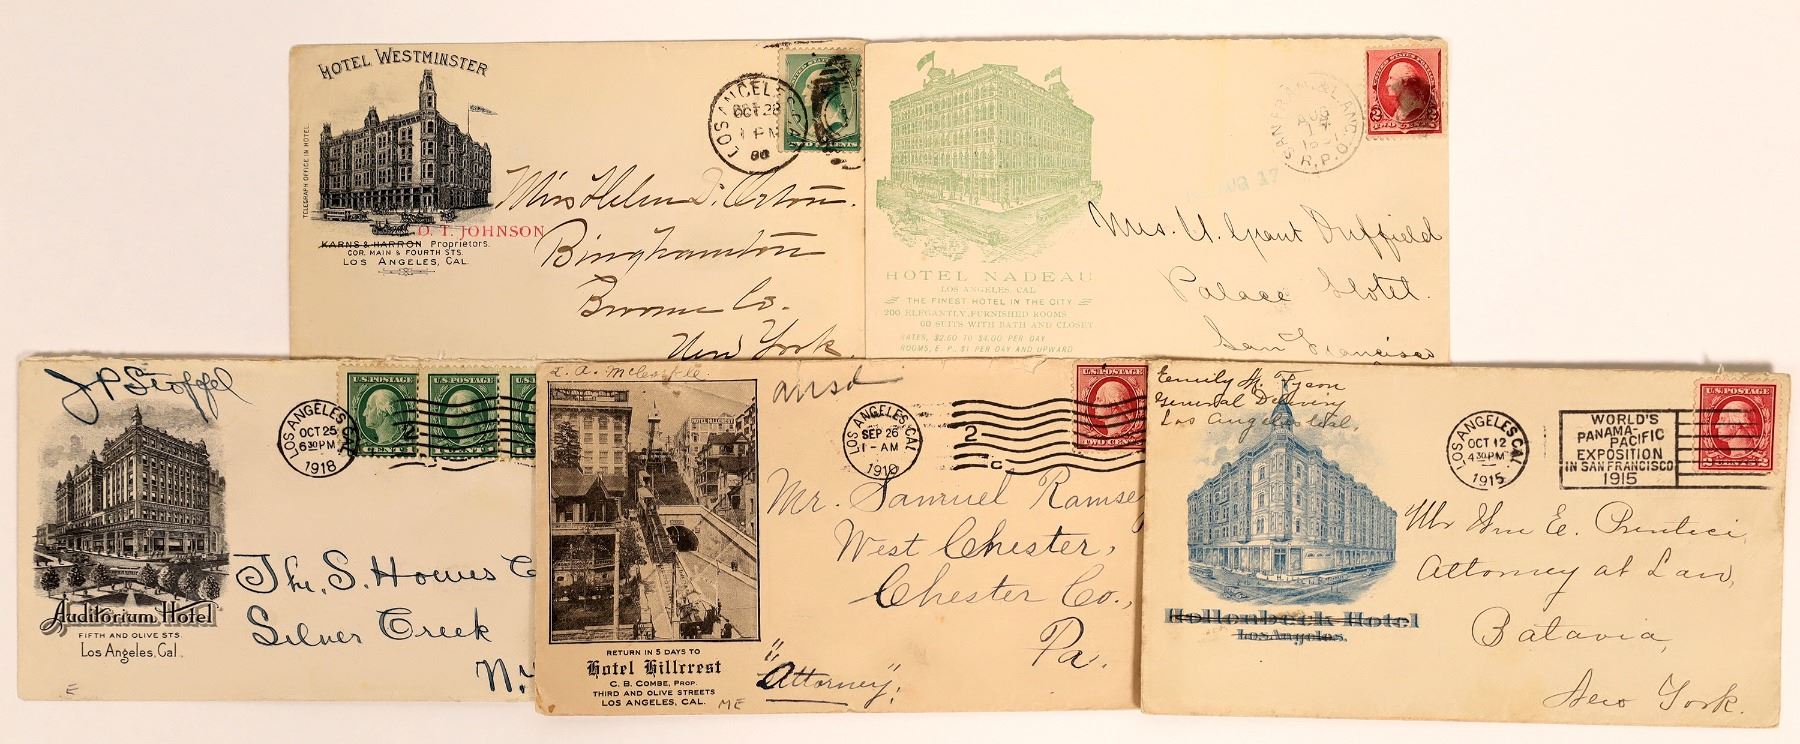 HOTEL WESTMINSTER
TELEGRAPH OFFICE IN HOTEL.
O. T. JOHNSON
KARNS & HARRON Proprietors.
COR. MAIN & FOURTH STS.
LOS ANGELES, CAL.
LOS ANGELES, CAL
OCT 28
1 PM
Miss Helen D. Orton.
Binghamton
Broome Co.
New York.
HOTEL NADEAU
LOS ANGELES, CAL
THE FINEST HOTEL IN THE CITY.
200 ELEGANTLY, FURNISHED ROOMS
60 SUITS WITH BATH AND CLOSET
RATES, $2.50 TO $4.00 PER DAY
ROOMS, E. P., $1 PER DAY AND UPWARD
AUG
17
R.P.O.
AUG 17
2 2
Mrs. U. Grant Duffield
Palace Hotel.
San Francisco
J P Stoffel
Auditorium Hotel
FIFTH AND OLIVE STS.
Los Angeles, Cal.
E
LOS ANGELES, CAL
OCT 25
6 30 PM
1918
U.S. POSTAGE
U.S. POSTAGE
The S. Howes C
Silver Creek
N.Y
HOTEL HILLCREST
RETURN IN 5 DAYS TO
Hotel Hillcrest
C. B. COMBE, PROP.
THIRD AND OLIVE STREETS
LOS ANGELES, CAL.
ME
ansd
LOS ANGELES, CAL.
SEP 26
1-AM
1910
2
C
U.S. POSTAGE
TWO CENTS
Mr. Samuel Ramsey
West Chester,
Chester Co.,
Pa.
"Attorney".
Emily M. Tyson
General Delivery
Los Angeles Cal.
Hollenbeck Hotel
Los Angeles.
LOS ANGELES, CAL
OCT 12
4 30 PM
1915
WORLD'S
PANAMA-PACIFIC
EXPOSITION
IN SAN FRANCISCO
1915
U.S. POSTAGE
2 CENTS 2
Mr Wm E. Prentice,
Attorney at Law,
Batavia,
New York.